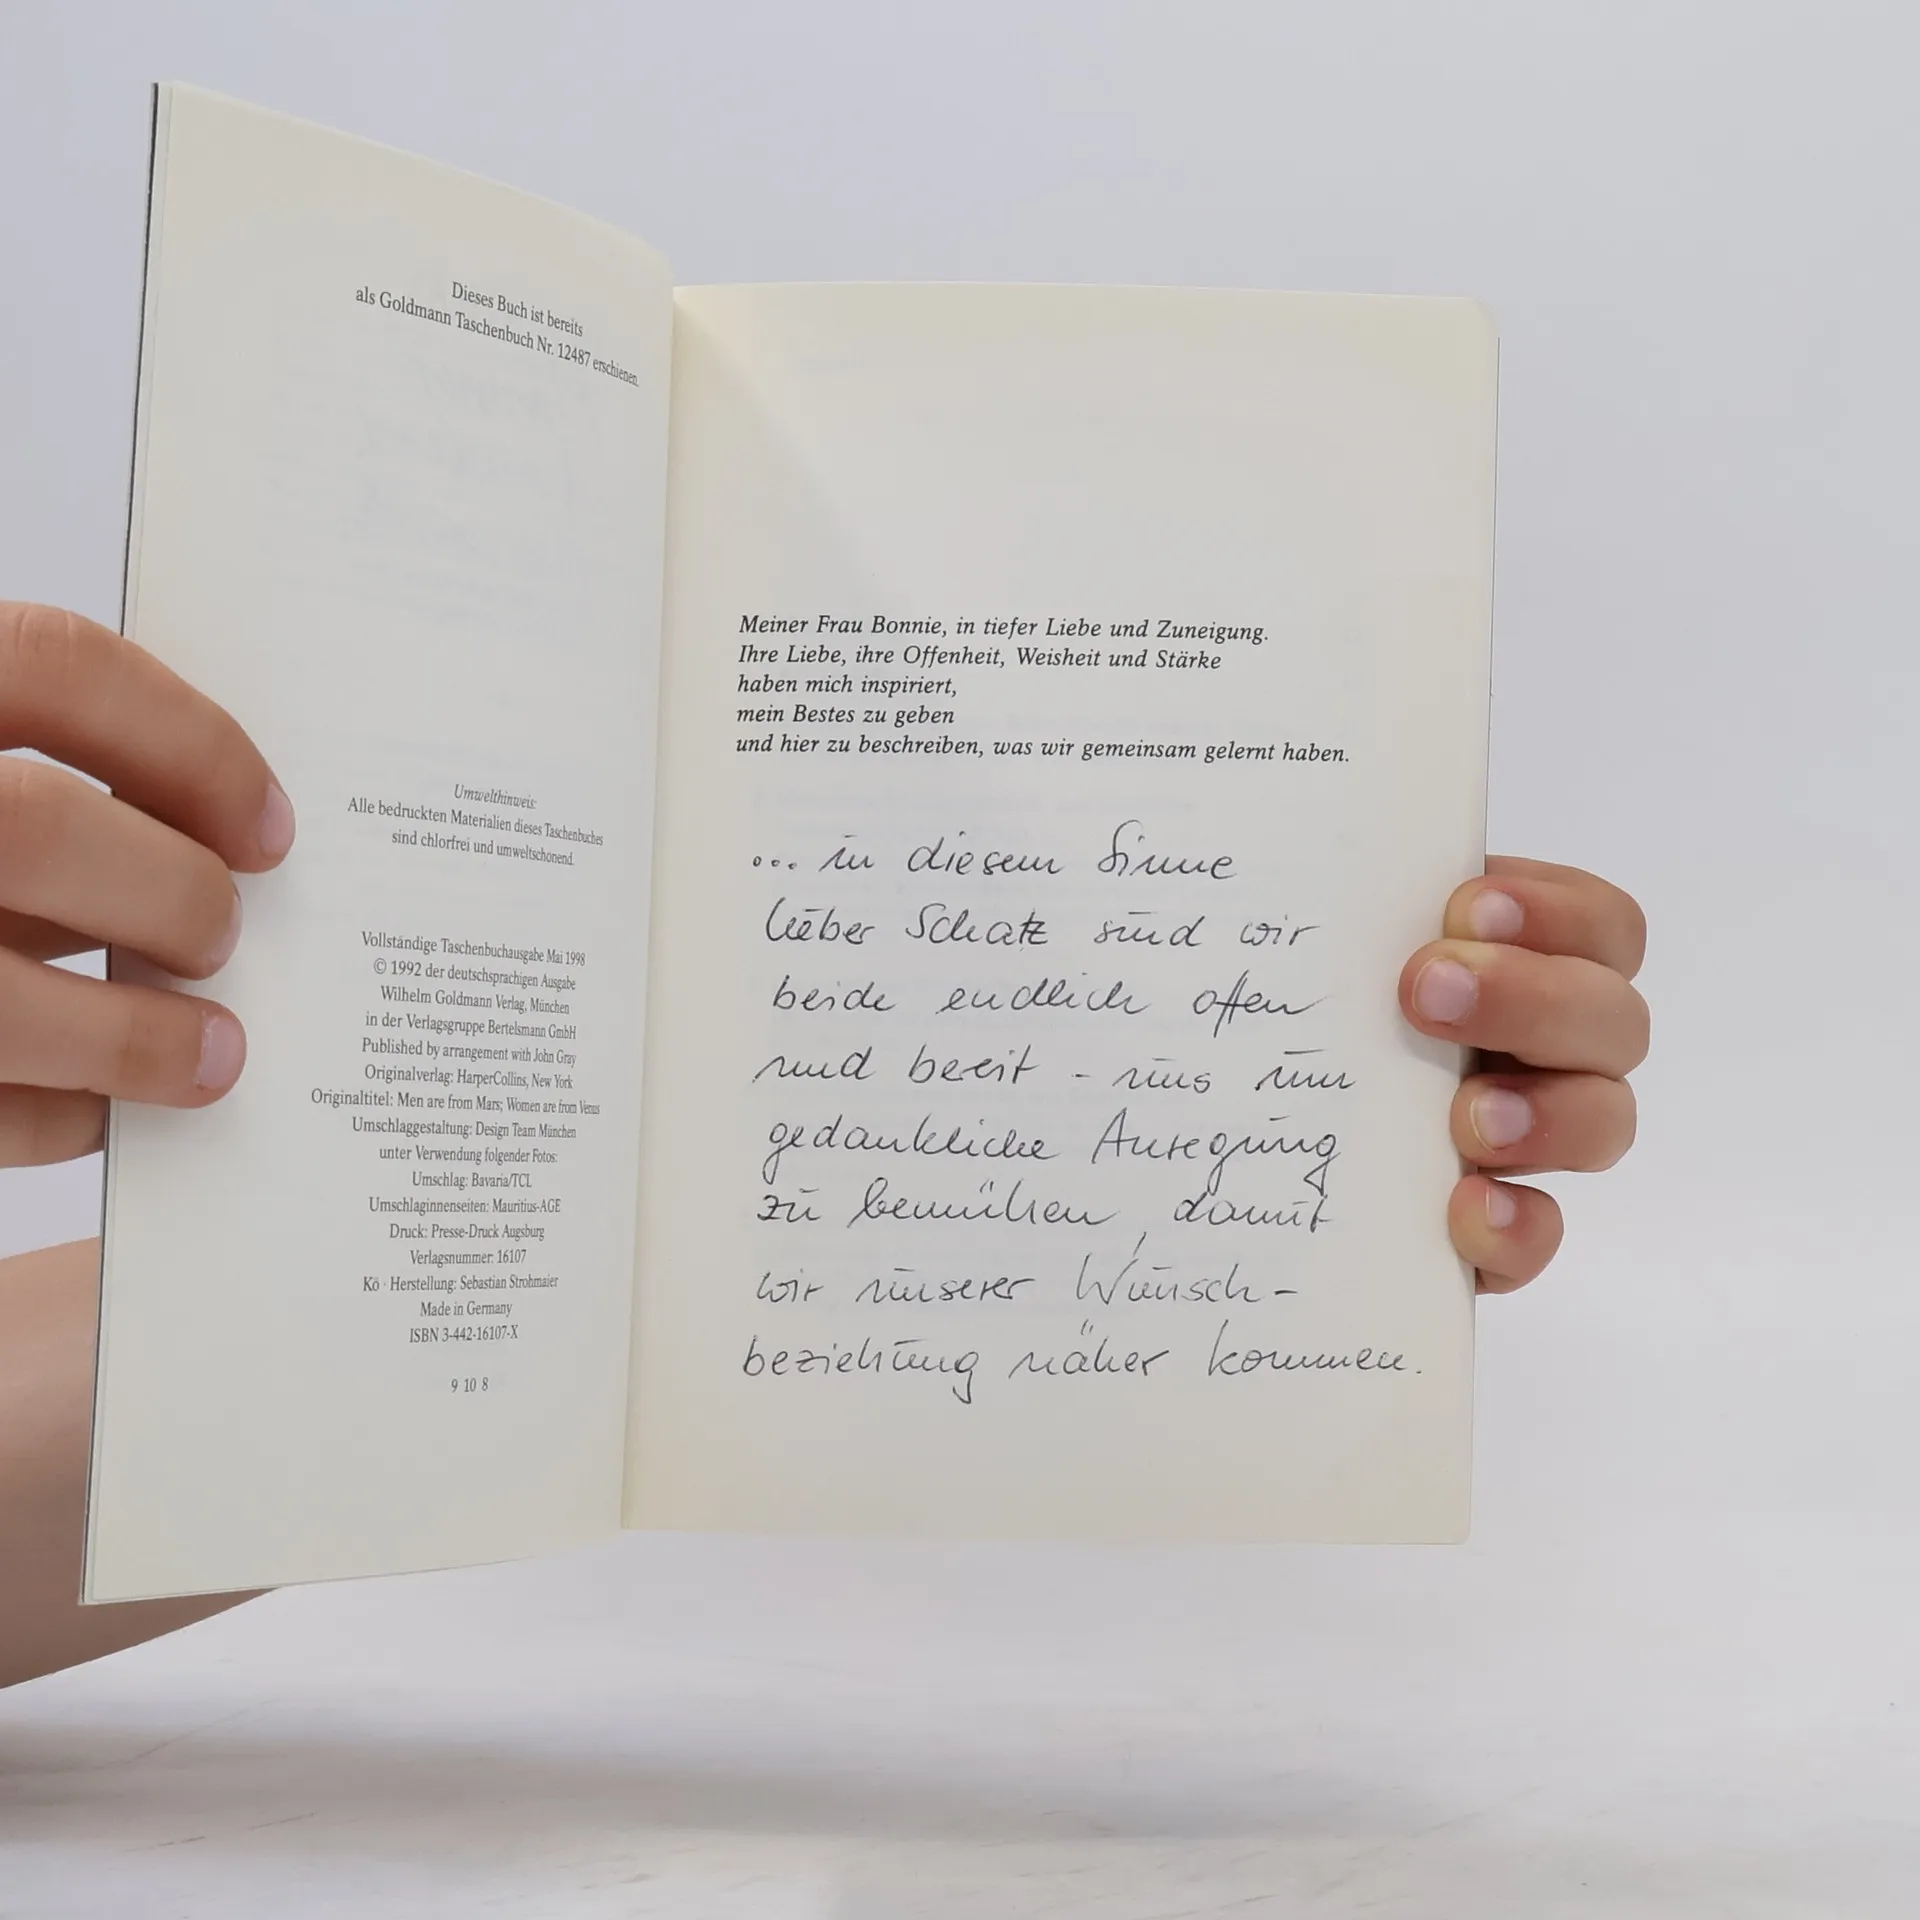 Dieses Buch ist bereits
als Goldmann Taschenbuch Nr. 12487 erschienen.
Umwelthinweis:
Alle bedruckten Materialien dieses Taschenbuches
sind chlorfrei und umweltschonend.
Vollständige Taschenbuchausgabe Mai 1998
© 1992 der deutschsprachigen Ausgabe
Wilhelm Goldmann Verlag, München
in der Verlagsgruppe Bertelsmann GmbH
Published by arrangement with John Gray
Originalverlag: HarperCollins, New York
Originaltitel: Men are from Mars; Women are from Venus
Umschlaggestaltung: Design Team München
unter Verwendung folgender Fotos:
Umschlag: Bavaria/TCL
Umschlaginnenseiten: Mauritius-AGE
Druck: Presse-Druck Augsburg
Verlagsnummer: 16107
Kö · Herstellung: Sebastian Strohmaier
Made in Germany
ISBN 3-442-16107-X
9 10 8
Meiner Frau Bonnie, in tiefer Liebe und Zuneigung.
Ihre Liebe, ihre Offenheit, Weisheit und Stärke
haben mich inspiriert,
mein Bestes zu geben
und hier zu beschreiben, was wir gemeinsam gelernt haben.
... in diesem Sinne
lieber Schatz sind wir
beide endlich offen
und bereit - uns um
gedankliche Anregung
zu bemühen, damit
wir unserer Wunsch-
beziehung näher kommen.